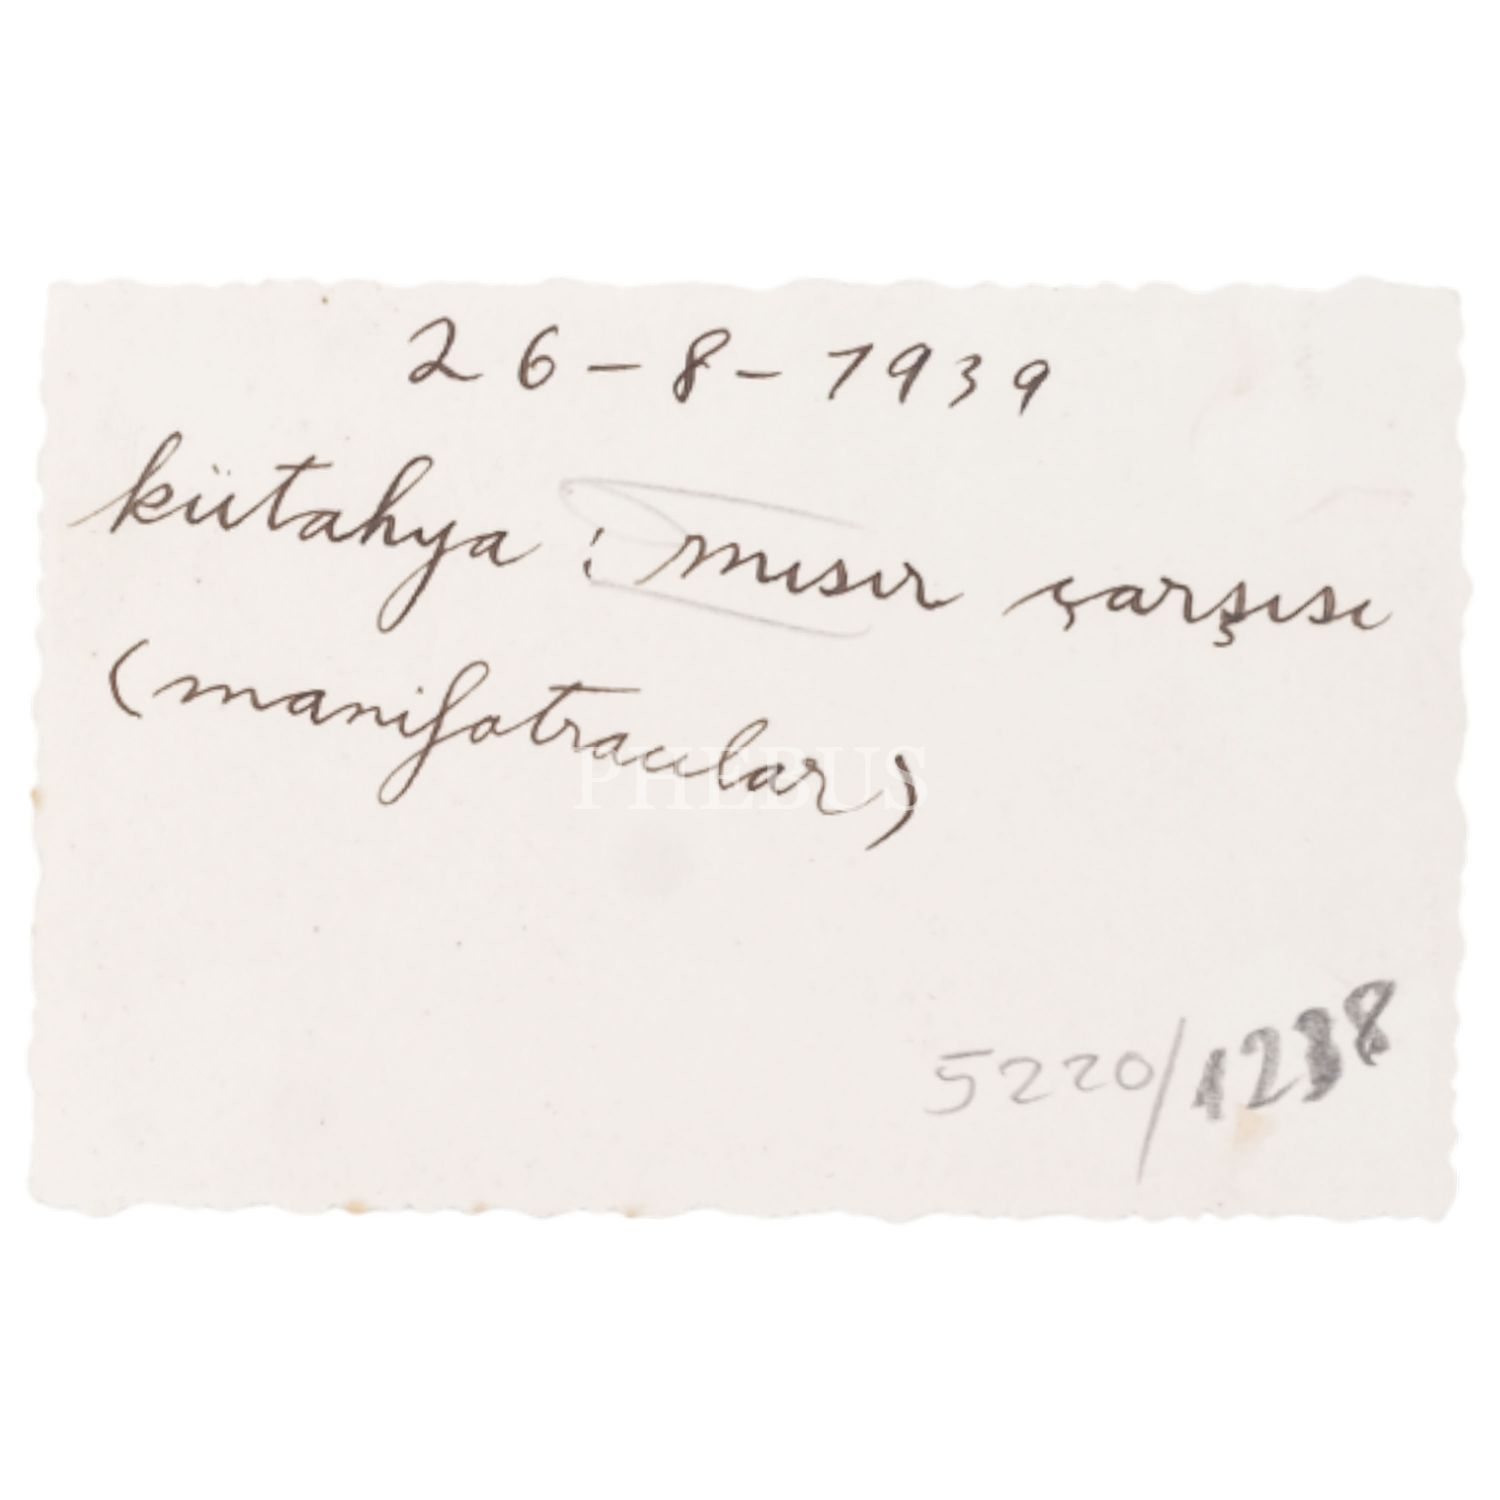 26-8-1939
kütahya : mısır çarşısı
(manifatracılar)
PHEBUS
5220/1238